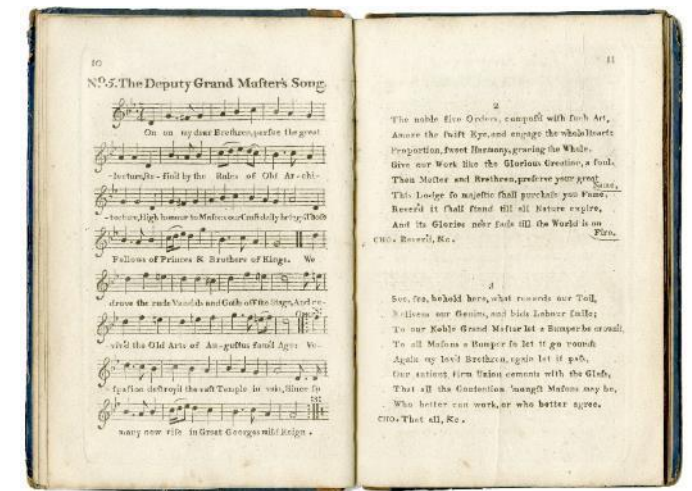 10
No. 5. The Deputy Grand Maſter's Song.
On on my dear Brethren, purſue the great
-lecture, Re-fin'd by the Rules of Old Ar-chi-
-tecture, High honour to Maſons our Craft daily brings Thoſe
Fellows of Princes & Brothers of Kings. We
drove the rude Vandals and Goths off the Stage, And re-
viv'd the Old Arts of Au-guſtus fam'd Age: Ve-
ſpaſian deſtroy'd the vaſt Temple in vain, Since ſo
many now riſe in Great Georges mild Reign.
11
2
The noble five Orders, compoſ'd with ſuch Art,
Amaze the ſwift Eye, and engage the whole Heart:
Proportion, ſweet Harmony, gracing the Whole,
Give our Work like the Glorious Creation, a ſoul.
Then Maſter and Brethren, preſerve your great
Name,
This Lodge ſo majeſtic ſhall purchaſe you Fame;
Rever'd it ſhall ſtand till all Nature expire,
And its Glories ne'er fade till the World is on
Fire.
CHO. Rever'd, &c.
3
See, ſee, behold here, what rewards our Toil,
Enlivens our Genius, and bids Labour ſmile;
To our Noble Grand Maſter let a Bumper be crown'd,
To all Maſons a Bumper ſo let it go round:
Again my lov'd Brethren, again let it paſs,
Our antient firm Union cements with the Glaſs,
That all the Contention 'mongſt Maſons may be,
Who better can work, or who better agree.
CHO. That all, &c.